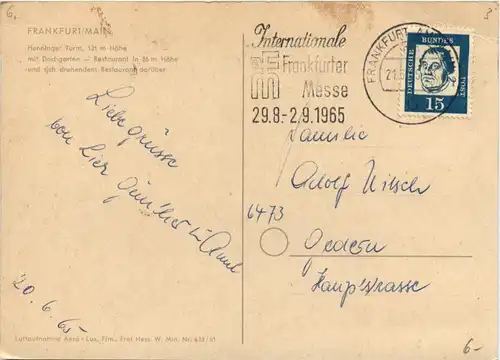 6.
3
FRANKFURT/MAIN
Henninger Turm, 121 m Höhe
mit Dachgarten — Restaurant in 86 m Höhe
und sich drehendem Restaurant darüber
Internationale
Frankfurter
Messe
29.8.-2.9.1965
FRANKFURT
DEUTSCHE BUNDESPOST
15
Liebe Grüsse
von hier Günther u.
20.6.65
Familie
Adolf
6473 Gedern
Hauptstrasse
Luftaufnahme Aero-Lux, Ffm., Frei Hess. W. Min. Nr.
6-